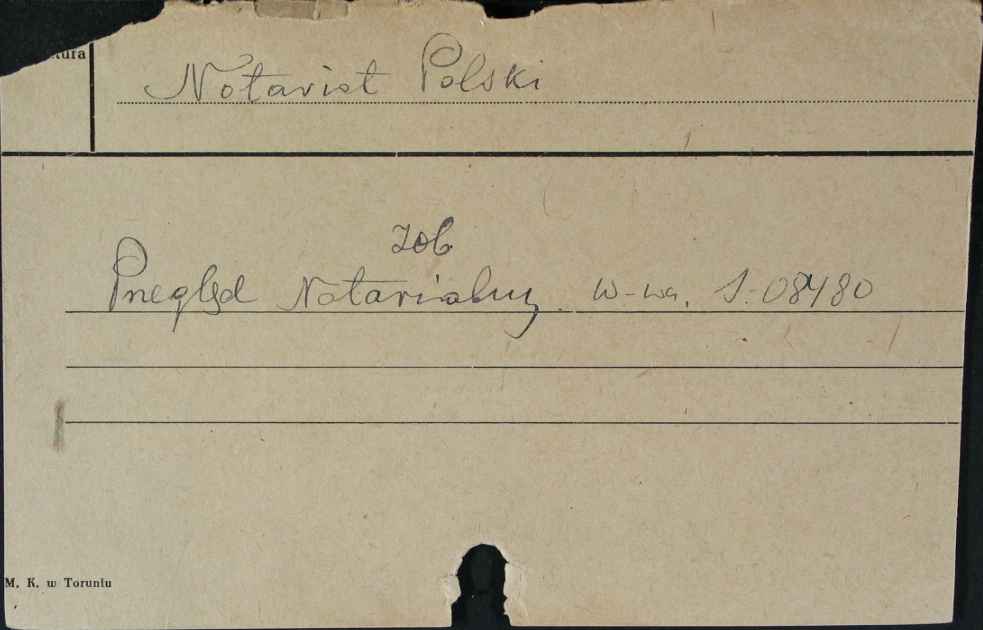 tura
Notariat Polski
zob
Przegląd Notarialny. W-wa, S. 08480
M. K. w Toruniu